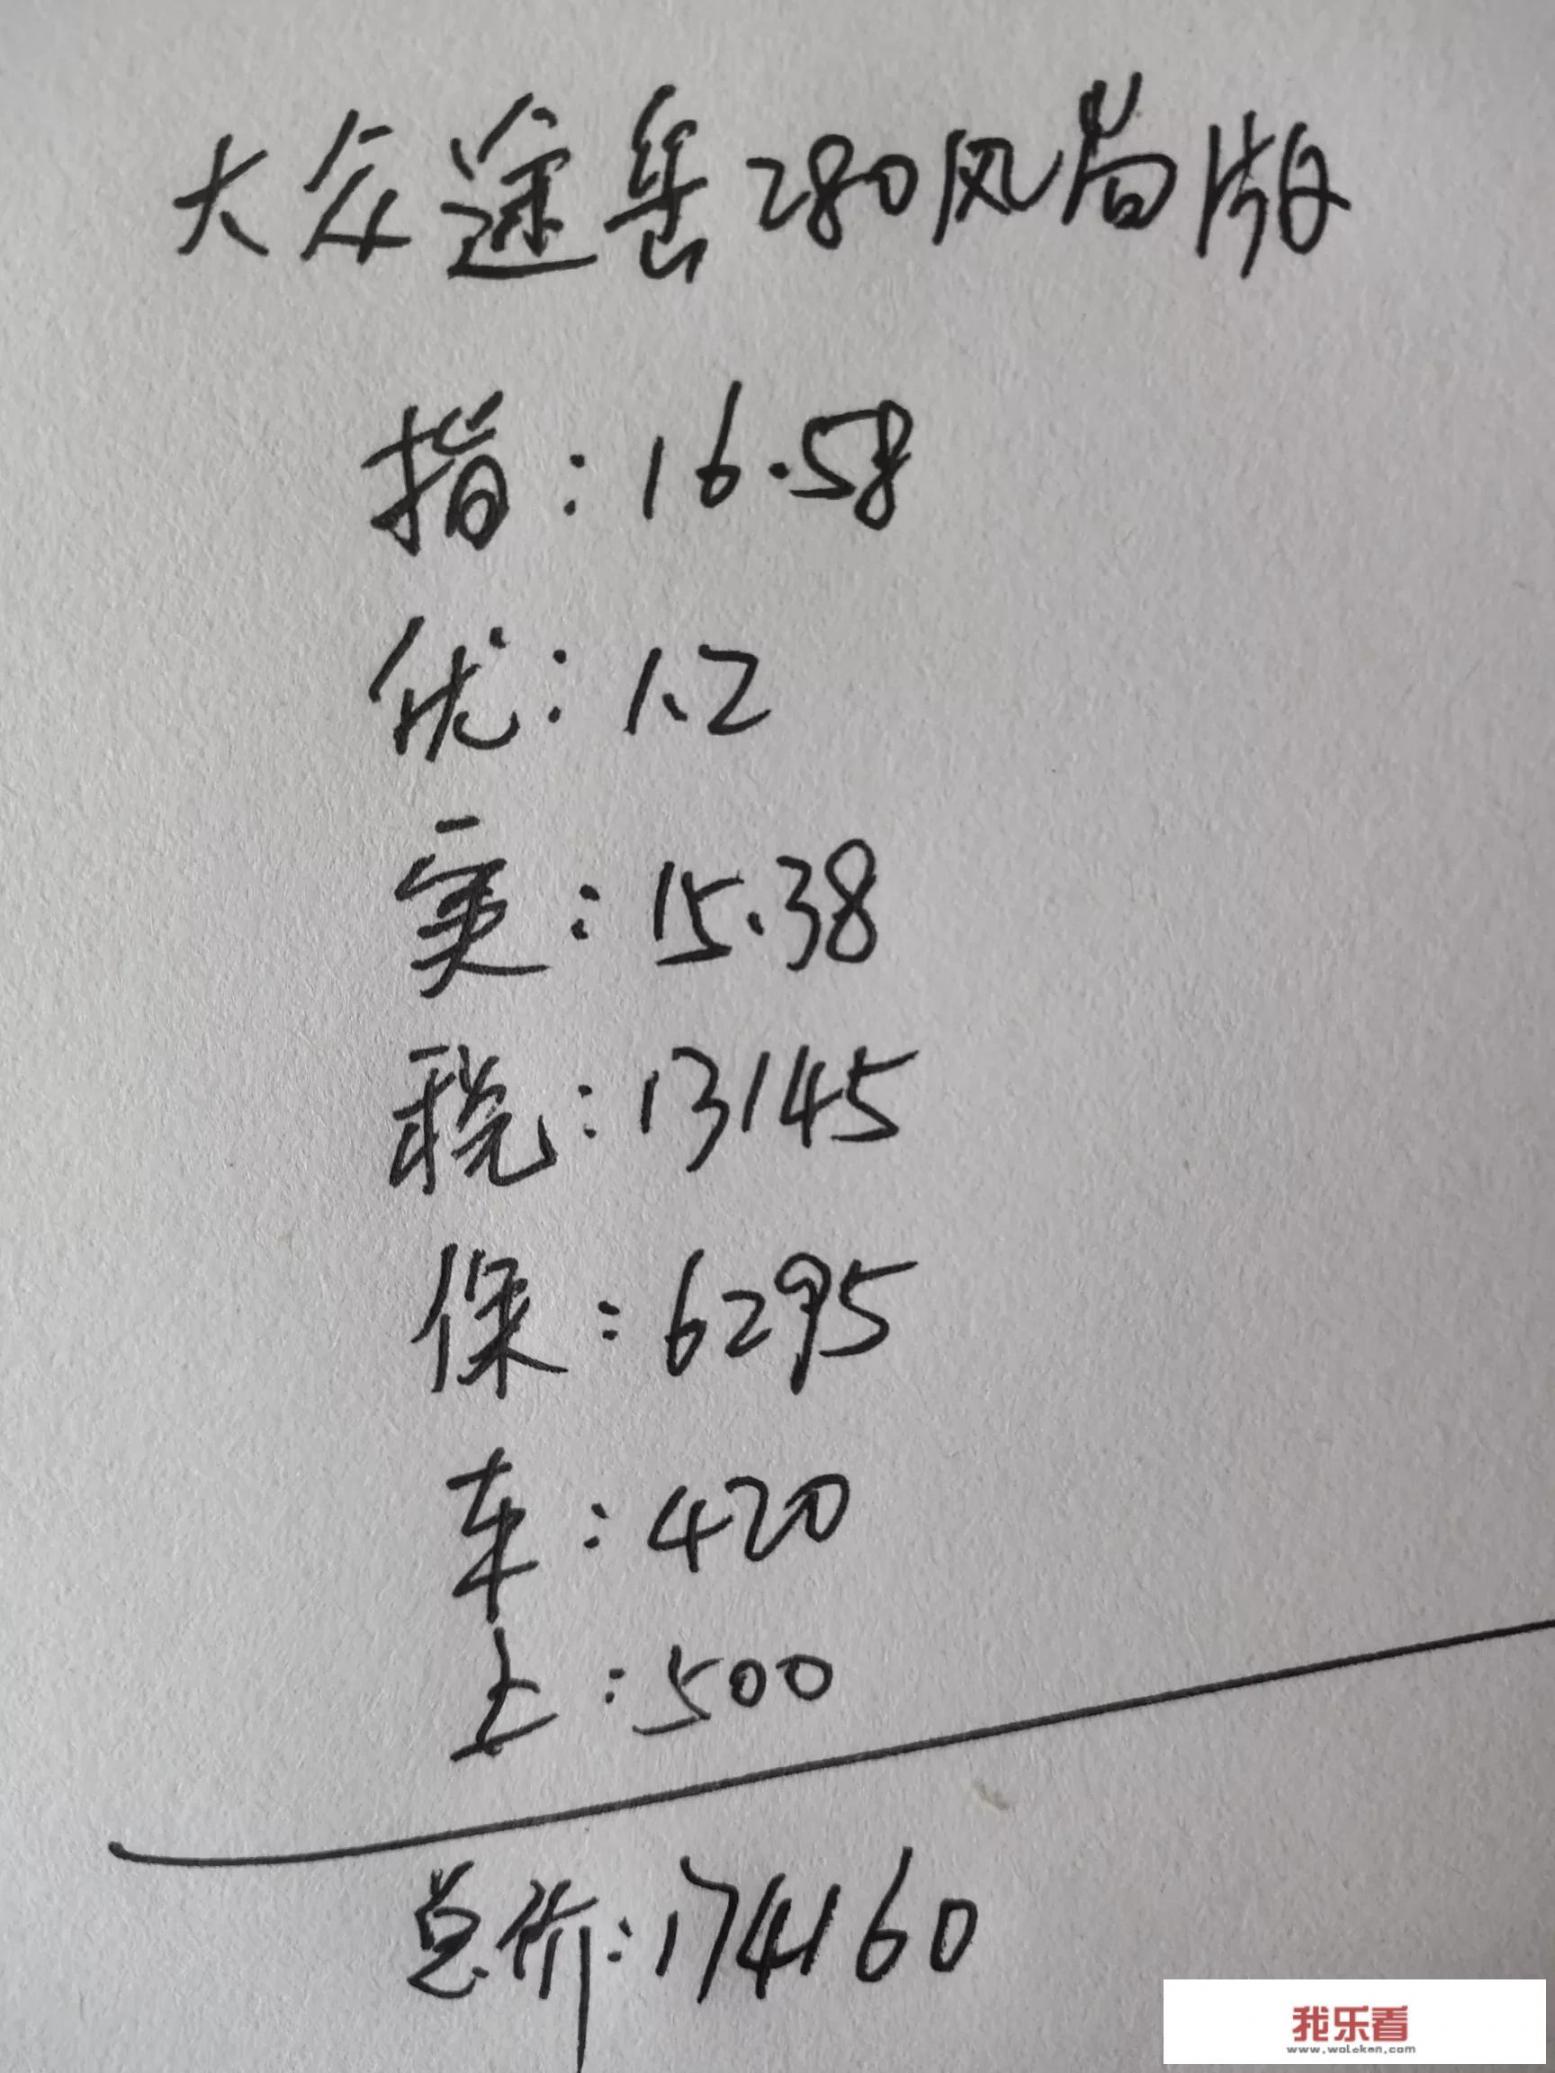 大众途岳280风尚版
指：16.58
优：1.2
实：15.38
税：13145
保：6295
车：420
上：500
总价：174160
我乐看
www.woleken.com